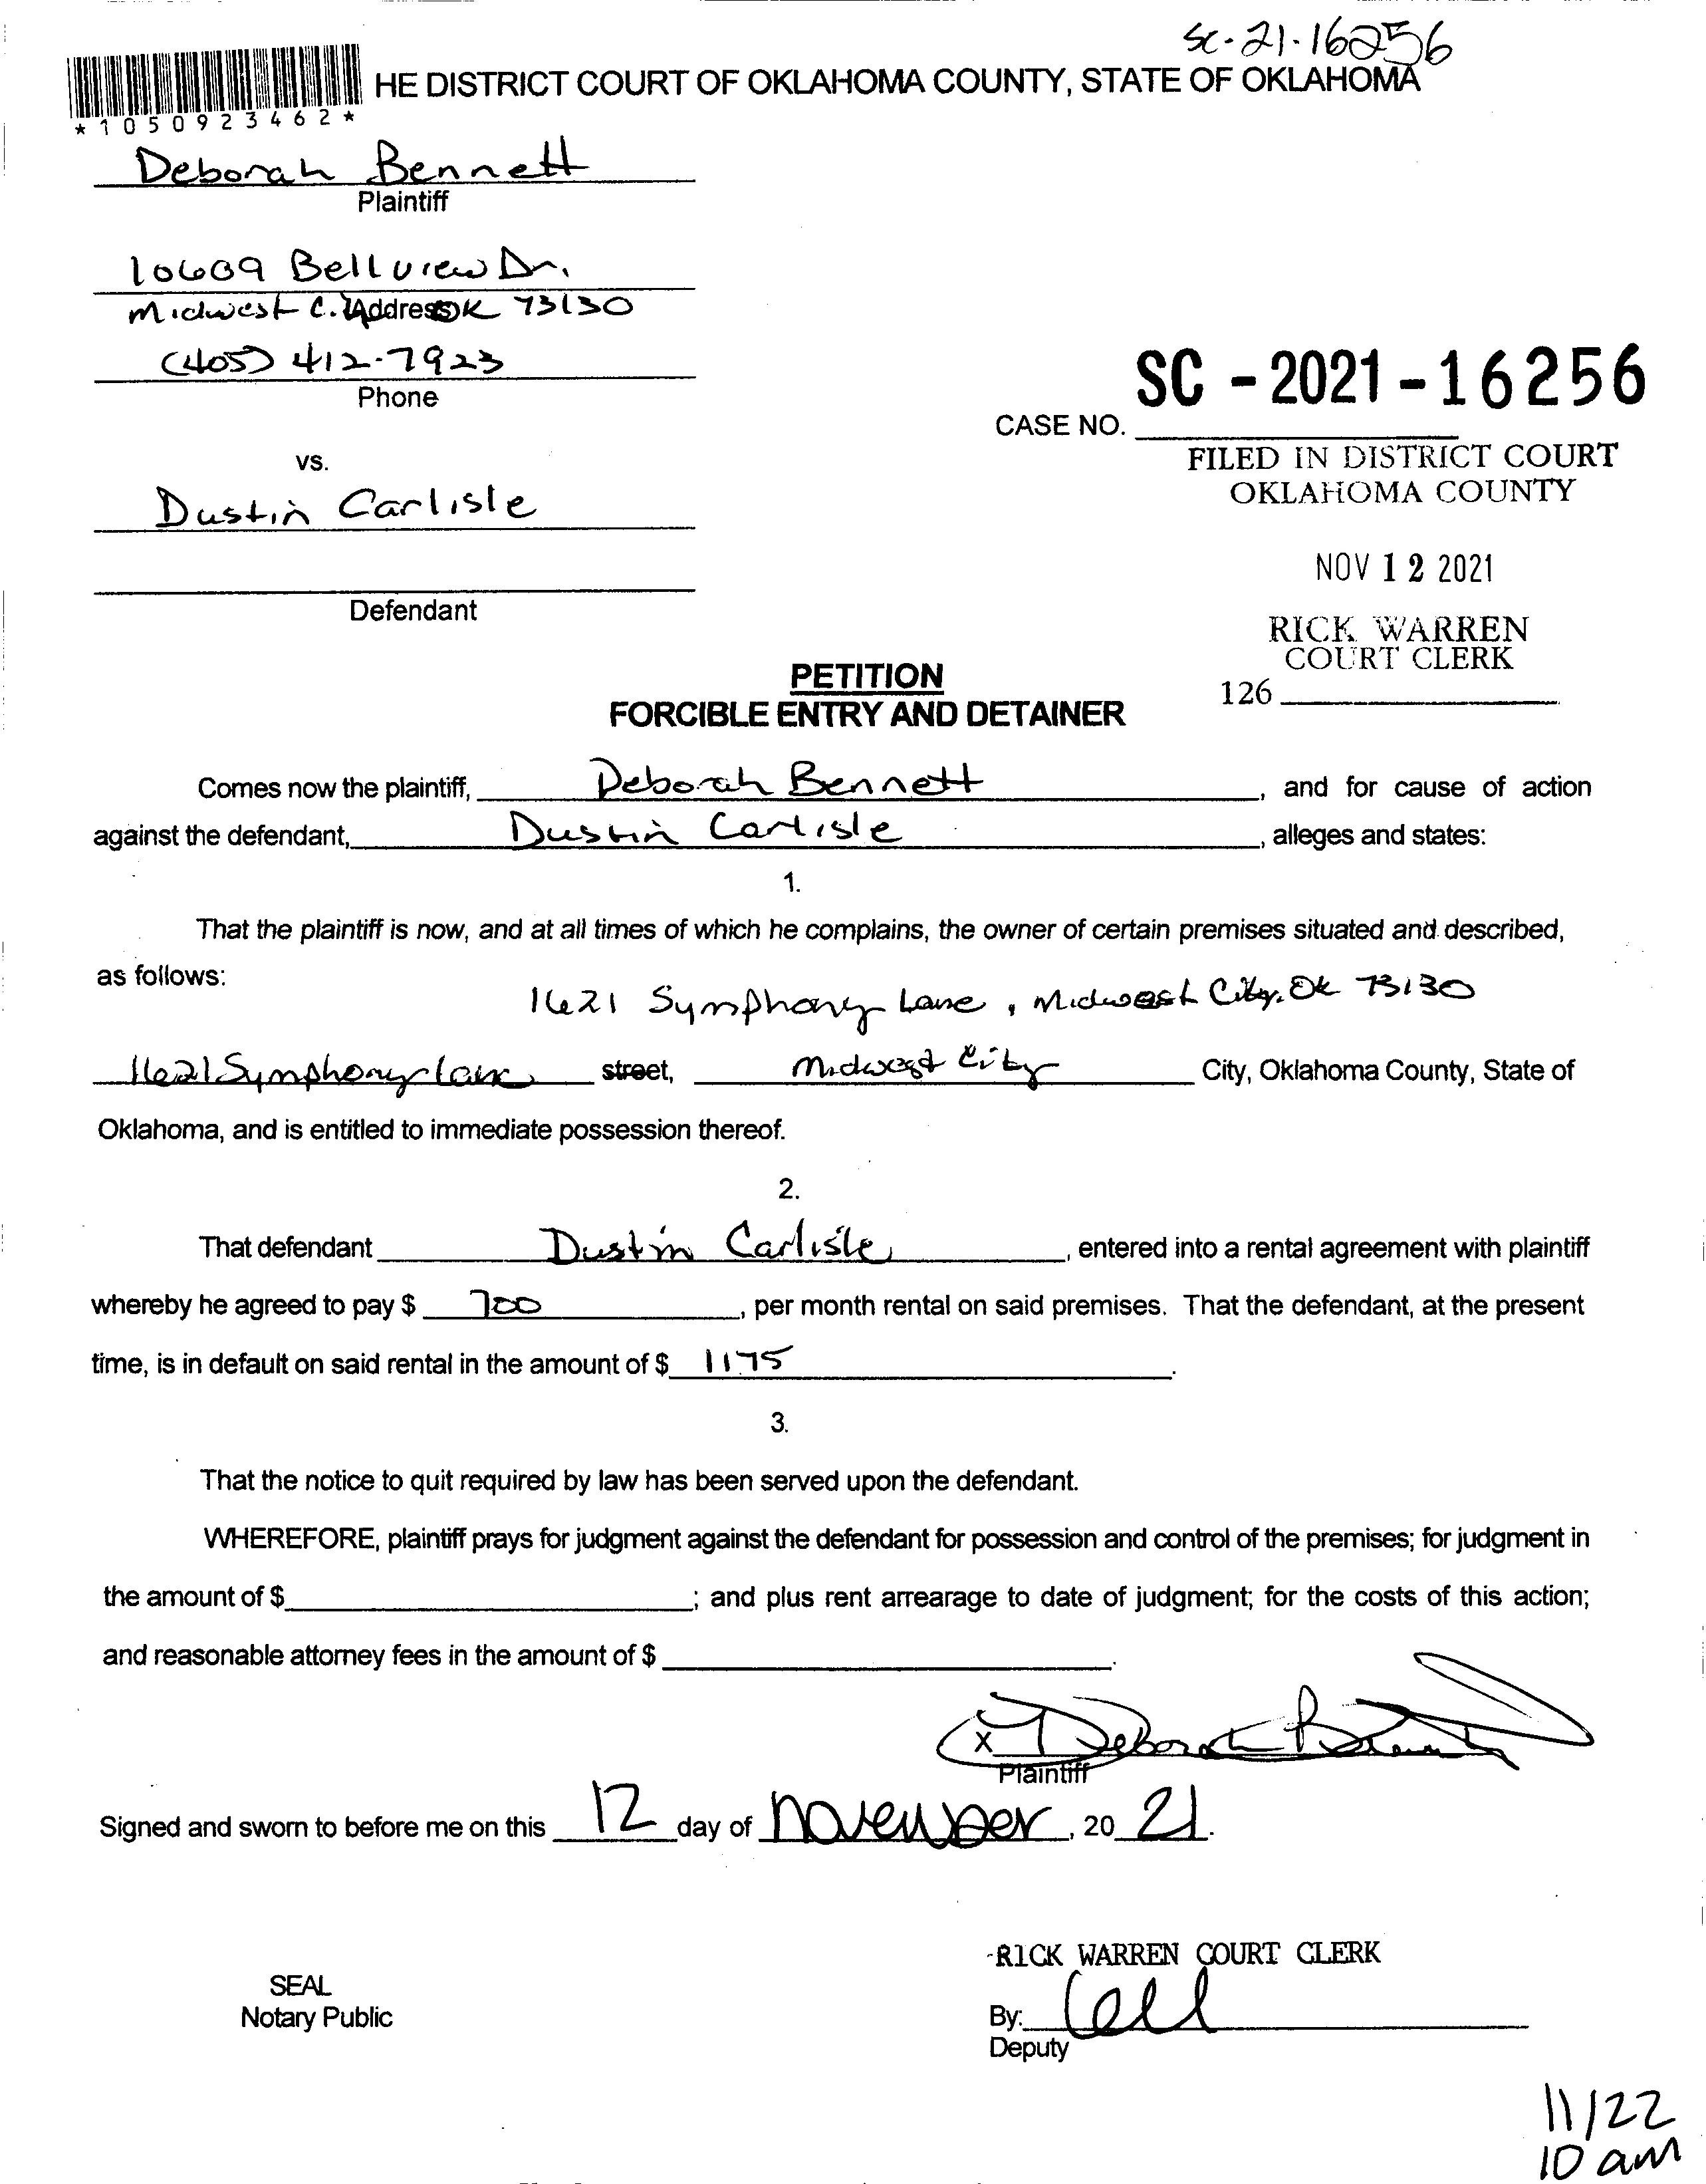 SC-21-16256
HE DISTRICT COURT OF OKLAHOMA COUNTY, STATE OF OKLAHOMA
*1050923462*
Deborah Bennett
Plaintiff
10609 Bellview Dr.
Midwest C. Address OK 73130
(405) 412-7923
Phone
SC - 2021 - 16256
CASE NO.
vs.
FILED IN DISTRICT COURT
OKLAHOMA COUNTY
Dustin Carlisle
NOV 12 2021
Defendant
RICK WARREN
COURT CLERK
126
PETITION
FORCIBLE ENTRY AND DETAINER
Comes now the plaintiff, Deborah Bennett, and for cause of action
against the defendant, Dustin Carlisle, alleges and states:
1.
That the plaintiff is now, and at all times of which he complains, the owner of certain premises situated and described,
as follows:
1621 Symphony Lane, Midwest City, Ok 73130
1621 Symphony Lane street, Midwest City City, Oklahoma County, State of
Oklahoma, and is entitled to immediate possession thereof.
2.
That defendant Dustin Carlisle, entered into a rental agreement with plaintiff
whereby he agreed to pay $ 700, per month rental on said premises. That the defendant, at the present
time, is in default on said rental in the amount of $ 1175.
3.
That the notice to quit required by law has been served upon the defendant.
WHEREFORE, plaintiff prays for judgment against the defendant for possession and control of the premises; for judgment in
the amount of $ ; and plus rent arrearage to date of judgment; for the costs of this action;
and reasonable attorney fees in the amount of $ .
X Deborah Bennett
Plaintiff
Signed and sworn to before me on this 12 day of November, 20 21.
RICK WARREN COURT CLERK
SEAL
Notary Public
By:
Deputy
11/22
10 am